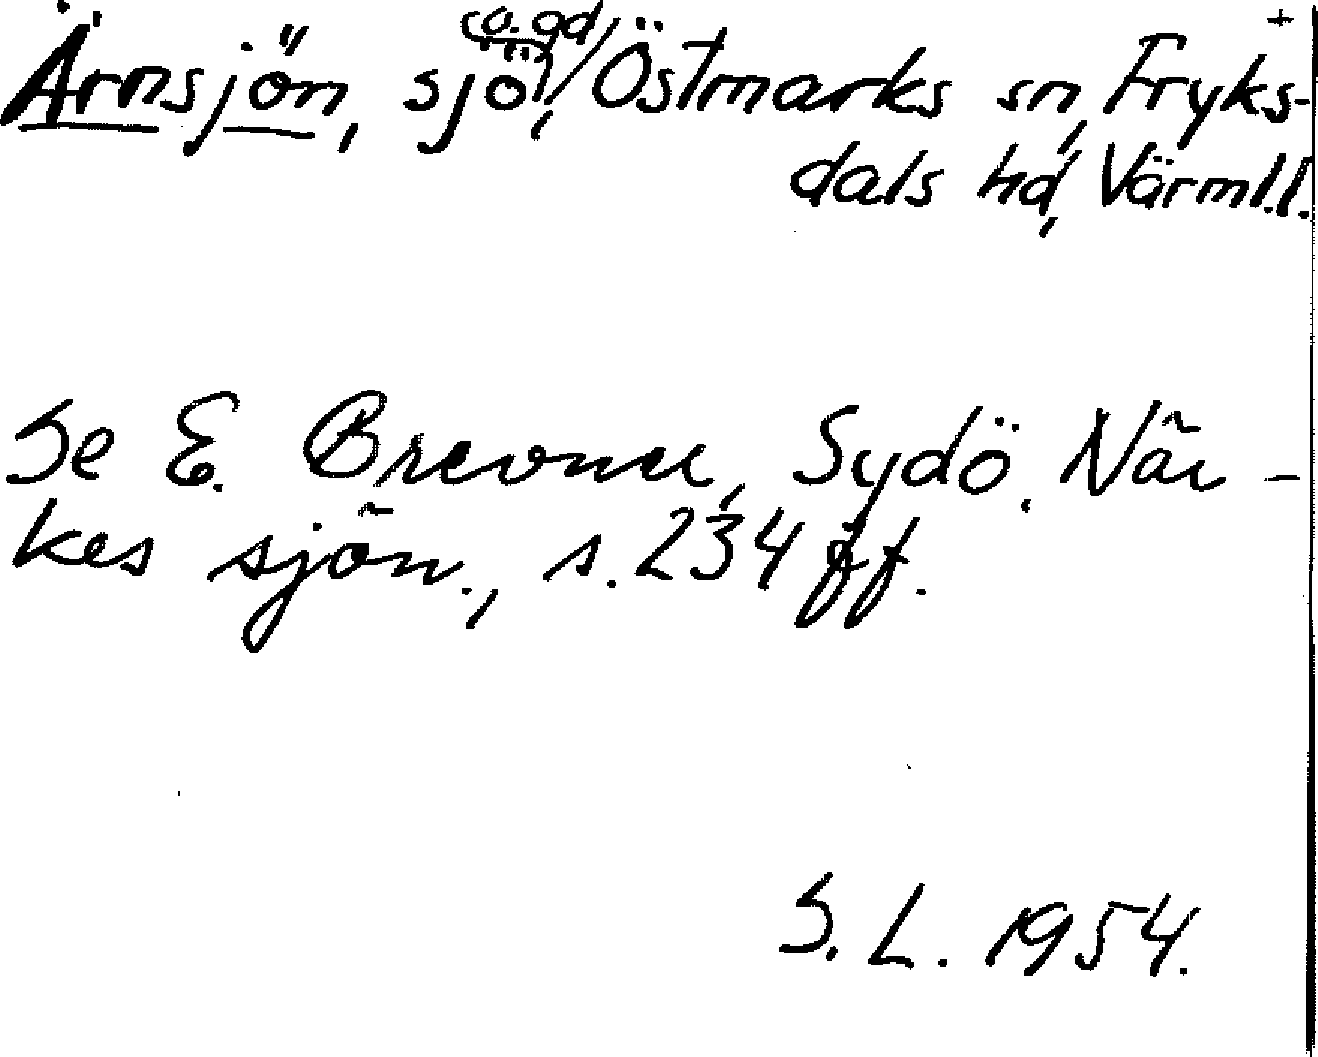 +
Ärnsjön, sjö, (o. gd) Östmarks sn, Fryks-
dals hd, Värml. l.
Se E. Brevner, Sydö. När-
kes sjön., s. 234 ff.
S. L. 1954.